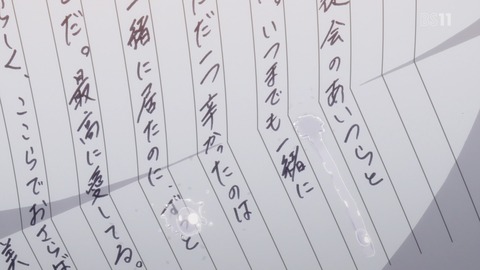 徒会のあいつらと
いつまでも一緒に
だ一つ辛かったのは
一緒に居たのに、
と
だ。最高に愛してる。
らしく、ここらでおさらば
美
11